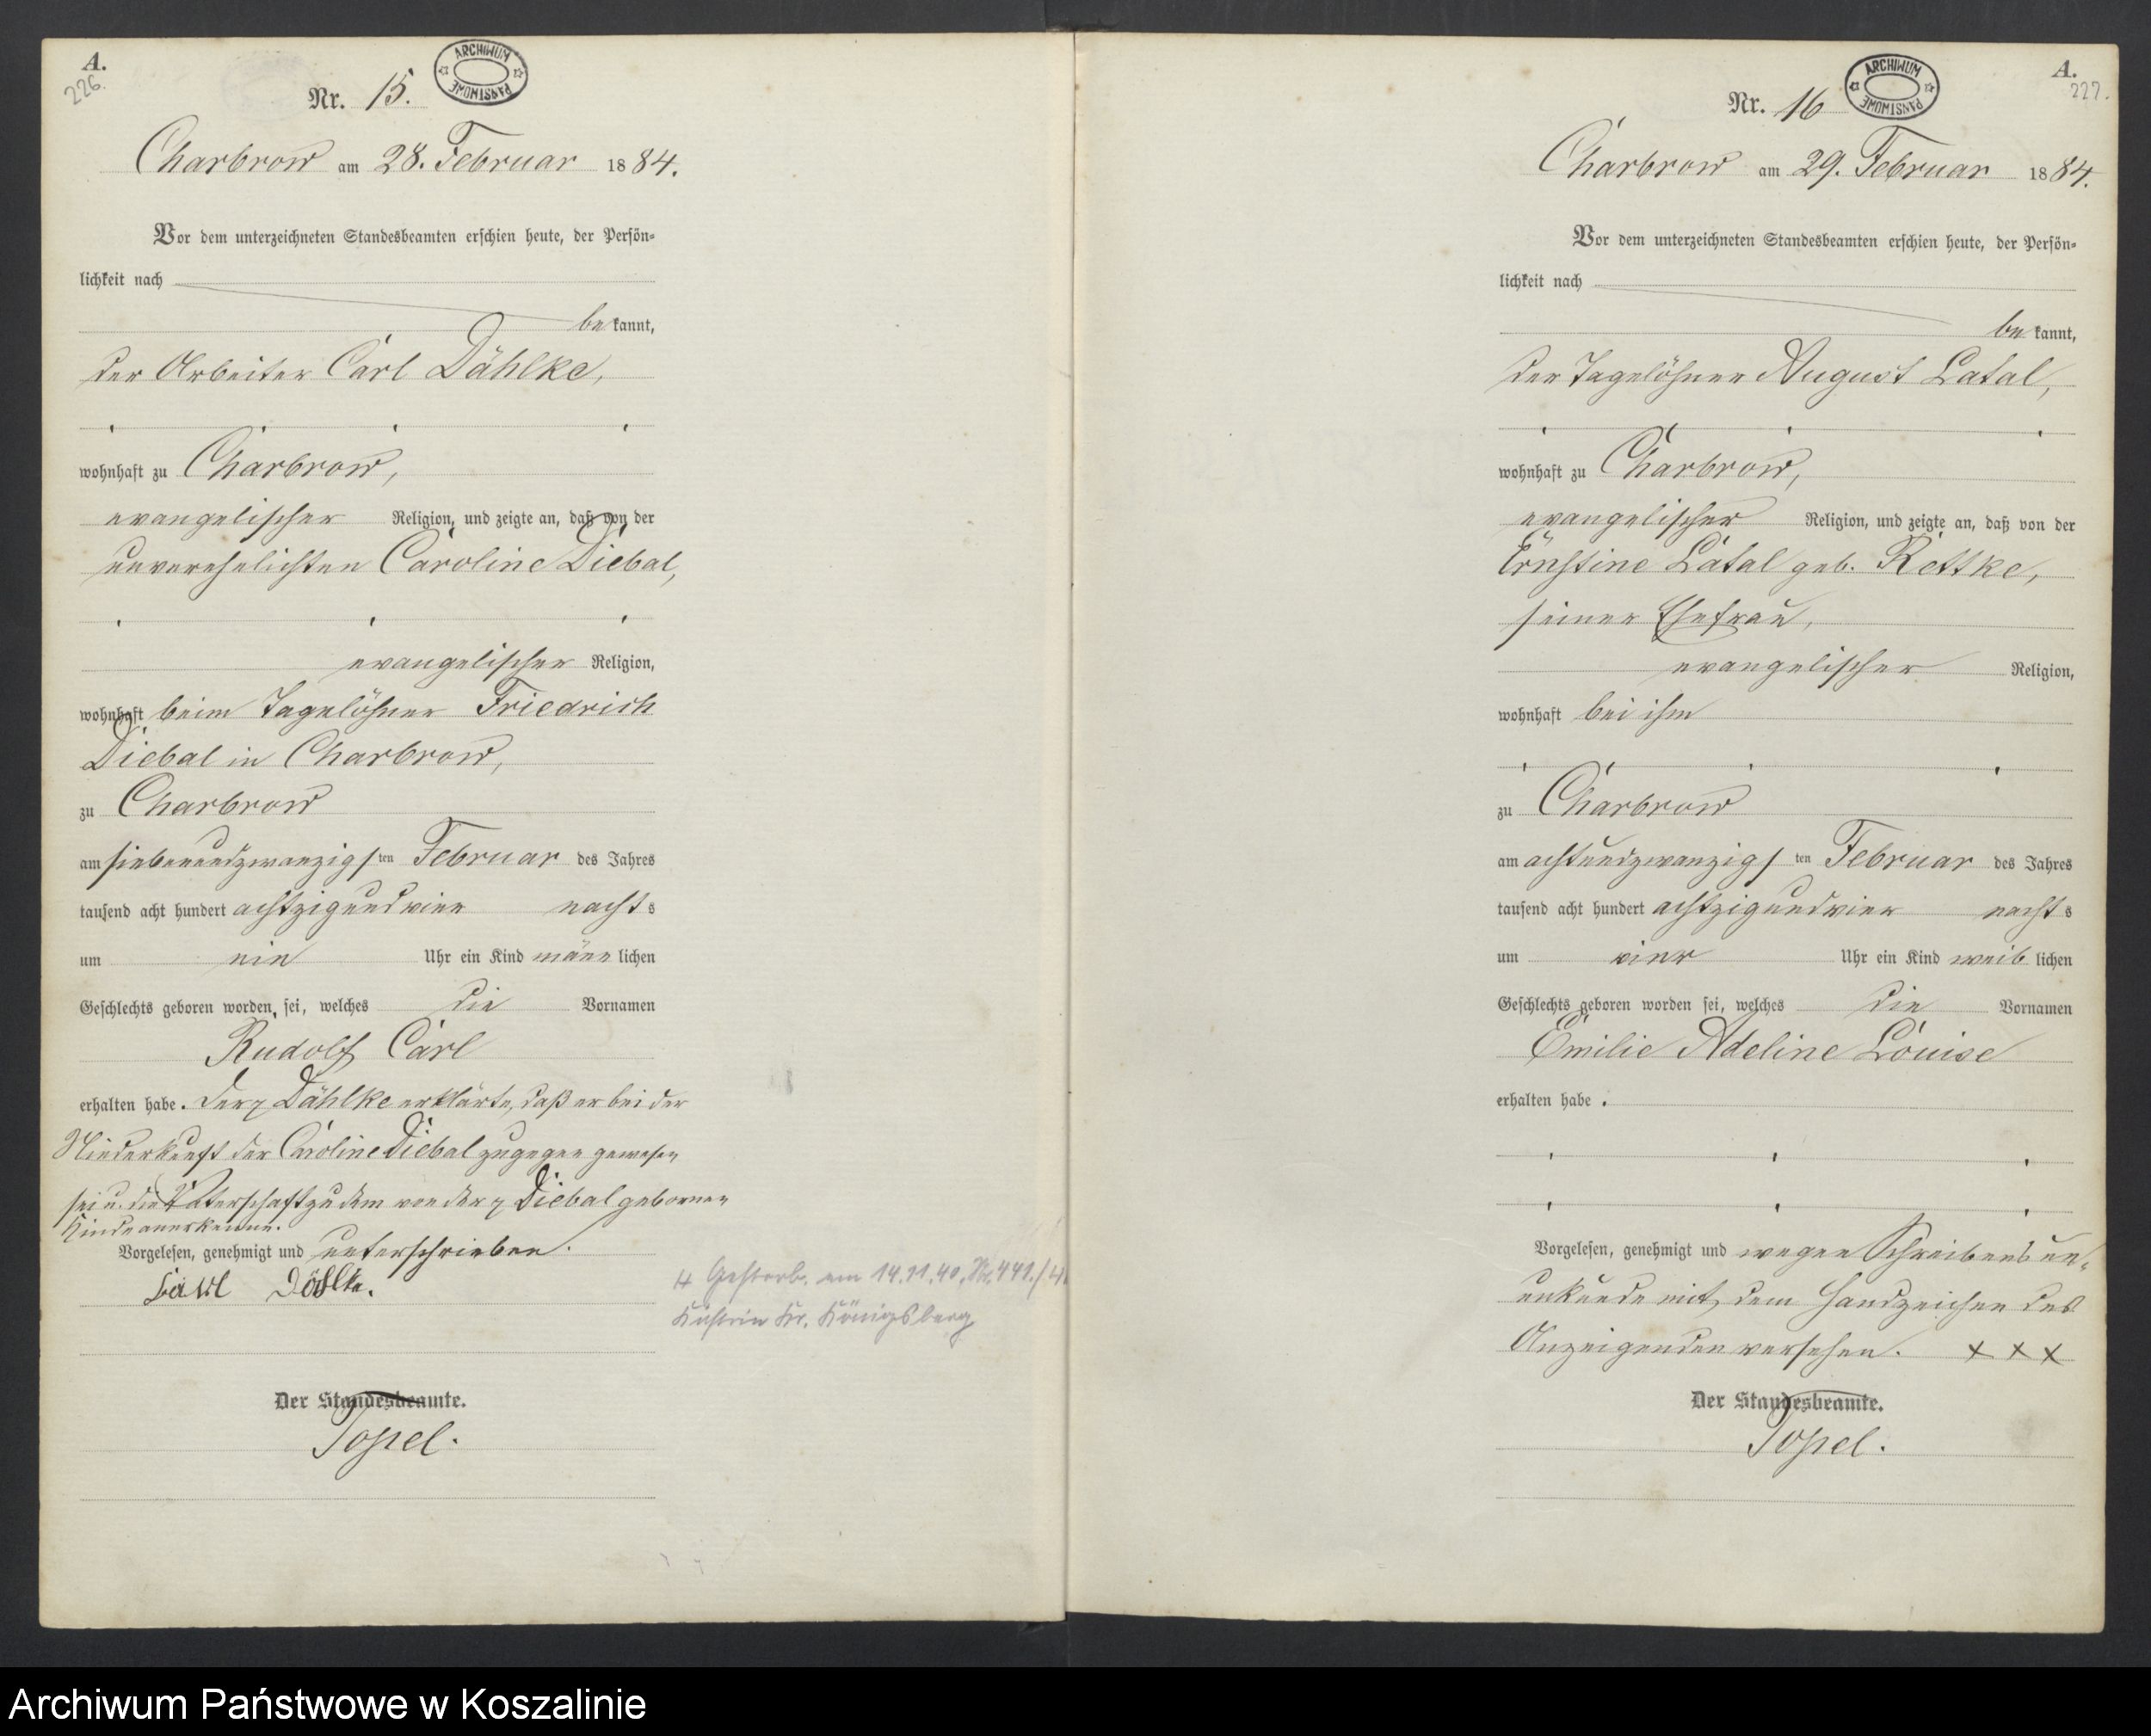 A.
226.
Nr. 15.
ARCHIWUM PAŃSTWOWE
Charbrow am 28. Februar 1884.
Vor dem unterzeichneten Standesbeamten erschien heute, der Persön-
lichkeit nach
bekannt,
der Arbeiter Carl Dählke,
wohnhaft zu Charbrow,
evangelischer Religion, und zeigte an, daß von der
unverehelichten Caroline Diebal,
evangelischer Religion,
wohnhaft beim Tagelöhner Friedrich
Diebal in Charbrow,
zu Charbrow
am siebenundzwanzigsten Februar des Jahres
tausend acht hundert achtzigundvier nachts
um ein Uhr ein Kind männlichen
Geschlechts geboren worden sei, welches die Vornamen
Rudolf Carl
erhalten habe. Der p Dählke erklärte, daß er bei der
Niederkunft der Caroline Diebal zugegen gewesen
sei u. die Vaterschaft zu dem von der p Diebal gebornen
Kinde anerkenne.
Vorgelesen, genehmigt und unterschrieben.
Carl Dählke.
Gestorb. am 14.11.40, Nr. 441./4
Küstrin Kr. Königsberg
Der Standesbeamte.
Topel.
A.
227.
Nr. 16
ARCHIWUM PAŃSTWOWE
Charbrow am 29. Februar 1884.
Vor dem unterzeichneten Standesbeamten erschien heute, der Persön-
lichkeit nach
bekannt,
der Tagelöhner August Latal,
wohnhaft zu Charbrow,
evangelischer Religion, und zeigte an, daß von der
Ernstine Latal geb. Rettke,
seiner Ehefrau,
evangelischer Religion,
wohnhaft bei ihm
zu Charbrow
am achtundzwanzigsten Februar des Jahres
tausend acht hundert achtzigundvier nachts
um vier Uhr ein Kind weiblichen
Geschlechts geboren worden sei, welches die Vornamen
Emilie Adeline Louise
erhalten habe.
Vorgelesen, genehmigt und wegen Schreibens un-
unkunde mit dem Handzeichen des
Anzeigenden versehen. XXX
Der Standesbeamte.
Topel.
Archiwum Państwowe w Koszalinie